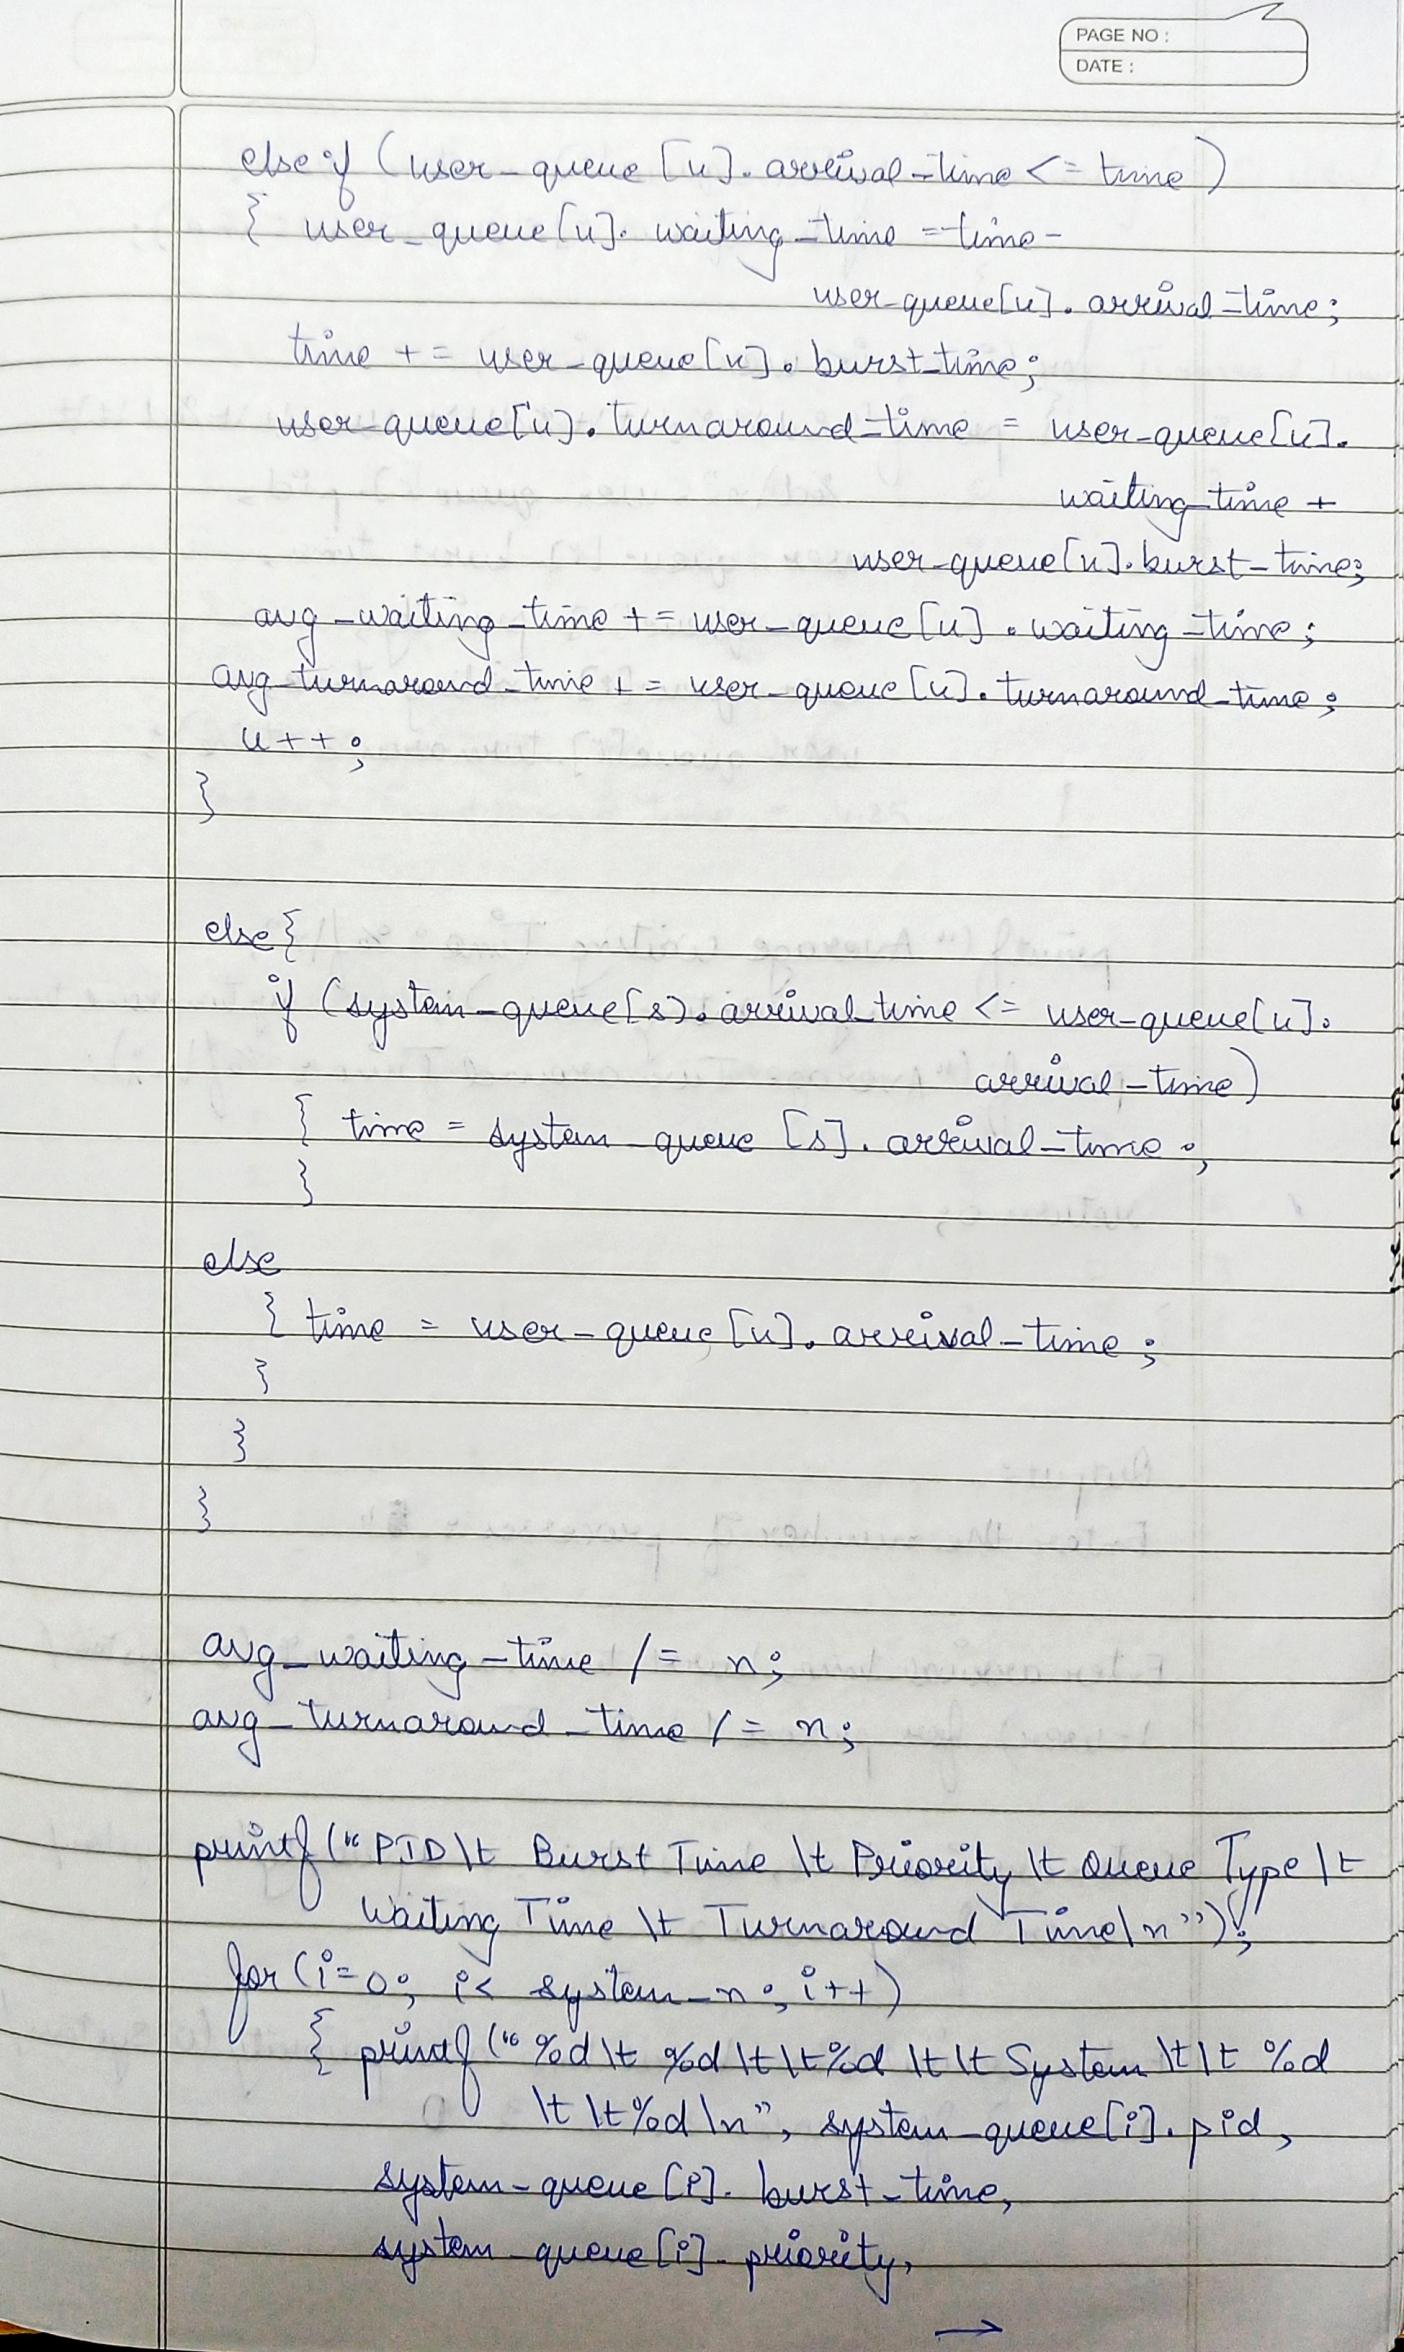 PAGE NO :
DATE :
else if (user_queue[u].arrival_time <= time)
{ user_queue[u]. waiting_time = time -
user_queue[u]. arrival_time;
time += user_queue[u]. burst_time;
user_queue[u]. turnaround_time = user_queue[u].
waiting_time +
user_queue[u]. burst_time;
avg_waiting_time += user_queue[u]. waiting_time;
avg_turnaround_time += user_queue[u]. turnaround_time;
u++;
}
else {
if (system_queue[s]. arrival_time <= user_queue[u].
arrival_time)
{ time = system_queue [s]. arrival_time ;
}
else
{ time = user_queue[u]. arrival_time ;
}
}
}
avg_waiting_time /= n;
avg_turnaround_time /= n;
printf("PID\t Burst Time \t Priority\t Queue Type\t
Waiting Time \t Turnaround Time\n");
for(i=0; i< system_n ; i++)
{ printf("%d\t %d\t\t%d \t\t System \t\t %d
\t\t%d\n", system_queue[i]. pid,
system_queue[i]. burst_time,
system_queue[i]. priority,
→